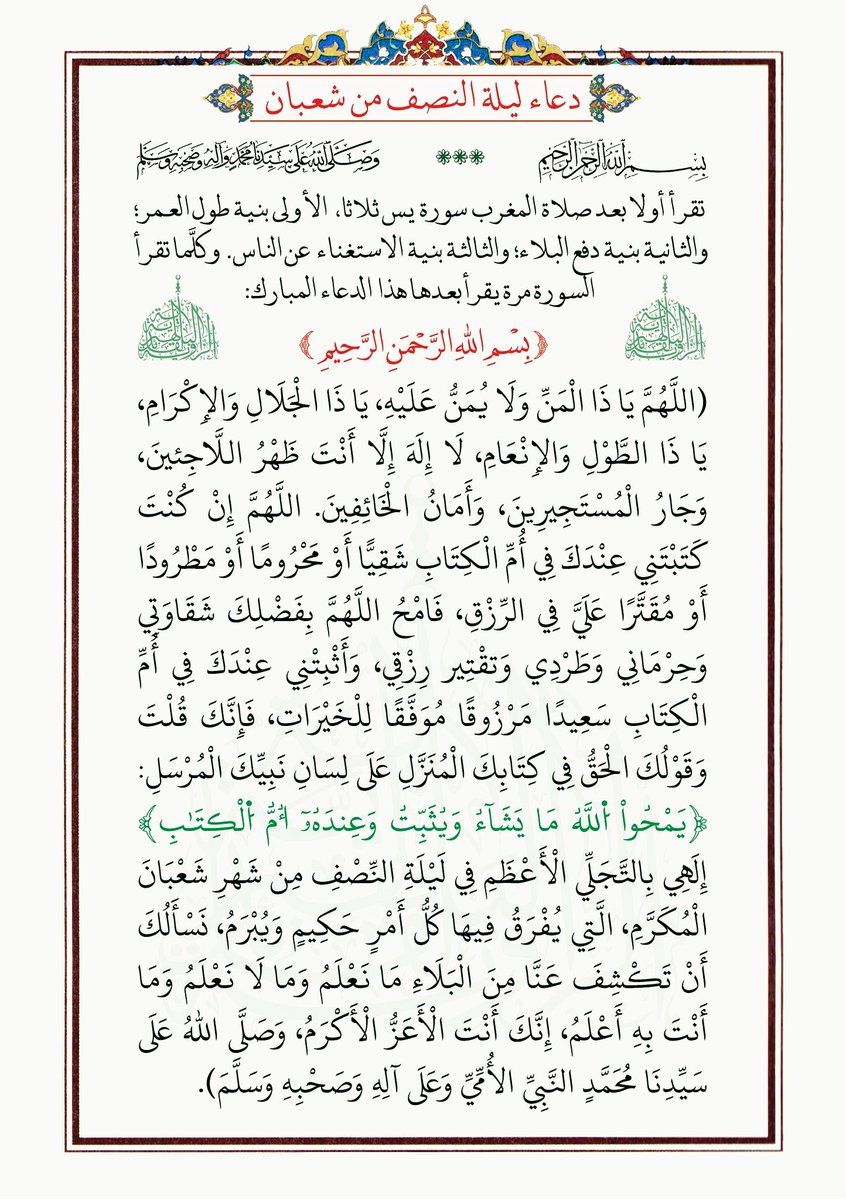 دعاء ليلة النصف من شعبان
بسم الله الرحمن الرحيم *** وصلى الله على سيدنا محمد وآله وصحبه وسلم
تقرأ أولا بعد صلاة المغرب سورة يس ثلاثا، الأولى بنية طول العمر؛
والثانية بنية دفع البلاء؛ والثالثة بنية الاستغناء عن الناس. وكلَّما تقرأ
السورة مرة يقرأ بعدها هذا الدعاء المبارك:
﴿بِسْمِ اللهِ الرَّحْمَنِ الرَّحِيمِ﴾
(اللَّهُمَّ يَا ذَا الْمَنِّ وَلَا يُمَنُّ عَلَيْهِ، يَا ذَا الْجَلَالِ وَالإِكْرَامِ،
يَا ذَا الطَّوْلِ وَالإِنْعَامِ، لَا إِلَهَ إِلَّا أَنْتَ ظَهْرُ اللَّاجِئينَ،
وَجَارُ الْمُسْتَجِيرِينَ، وَأَمَانُ الْخَائِفِينَ. اللَّهُمَّ إِنْ كُنْتَ
كَتَبْتَنِي عِنْدَكَ فِي أُمِّ الْكِتَابِ شَقِيًّا أَوْ مَحْرُومًا أَوْ مَطْرُودًا
أَوْ مُقَتَّرًا عَلَيَّ فِي الرِّزْقِ، فَامْحُ اللَّهُمَّ بِفَضْلِكَ شَقَاوَتِي
وَحِرْمَانِي وَطَرْدِي وَتَقْتِير رِزْقِي، وَأَثْبِتْنِي عِنْدَكَ فِي أُمِّ
الْكِتَابِ سَعِيدًا مَرْزُوقًا مُوَفَّقًا لِلْخَيْرَاتِ، فَإِنَّكَ قُلْتَ
وَقَوْلُكَ الْحَقُّ فِي كِتَابِكَ الْمُنَزَّلِ عَلَى لِسَانِ نَبِيِّكَ الْمُرْسَلِ:
﴿يَمْحُواْ اُللَّهُ مَا يَشَآءُ وَيُثَبِّتُ وَعِندَهُۥٓ أُمُّ اُلْكِتَٰبِ﴾
إِلَهِي بِالتَّجَلِّي الْأَعْظَمِ فِي لَيْلَةِ النِّصْفِ مِنْ شَهْرِ شَعْبَانَ
الْمُكَرَّمِ، الَّتِي يُفْرَقُ فِيهَا كُلُّ أَمْرٍ حَكِيمٍ وَيُبْرَمُ، نَسْأَلُكَ
أَنْ تَكْشِفَ عَنَّا مِنَ الْبَلَاءِ مَا نَعْلَمُ وَمَا لَا نَعْلَمُ وَمَا
أَنْتَ بِهِ أَعْلَمُ، إِنَّكَ أَنْتَ الْأَعَزُّ الْأَكْرَمُ، وَصَلَّى اللهُ عَلَى
سَيِّدِنَا مُحَمَّدٍ النَّبِيِّ الأُمِّيِّ وَعَلَى آلِهِ وَصَحْبِهِ وَسَلَّمَ).